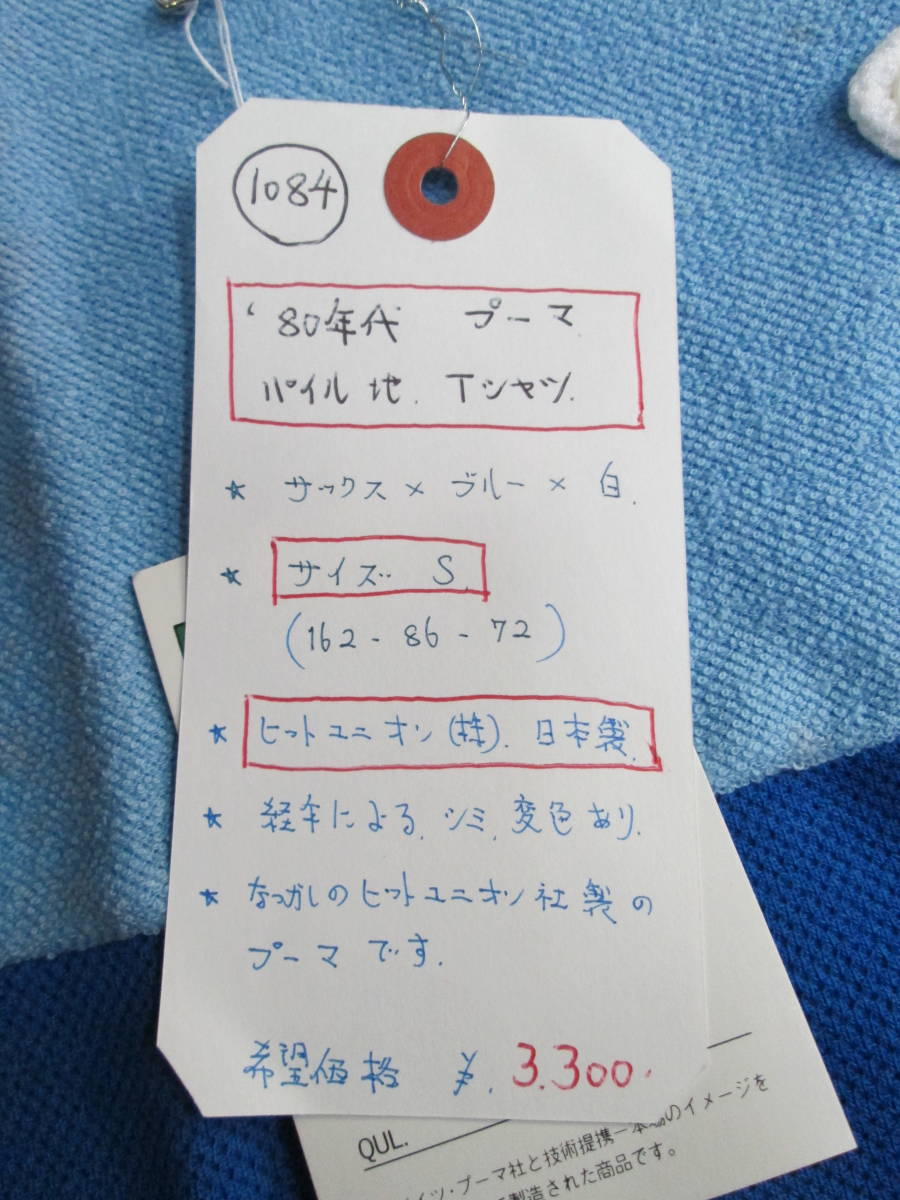 1084
'80年代 プーマ
パイル地. Tシャツ.
★ サックス×ブルー×白.
★ サイズ S.
(162-86-72)
★ ヒットユニオン(株). 日本製.
★ 経年による. シミ. 変色あり.
★ なつかしのヒットユニオン社製の
プーマです.
希望価格 ¥. 3.300.
QUL.
イツ・プーマ社と技術提携 のイメージを
製造された商品です。